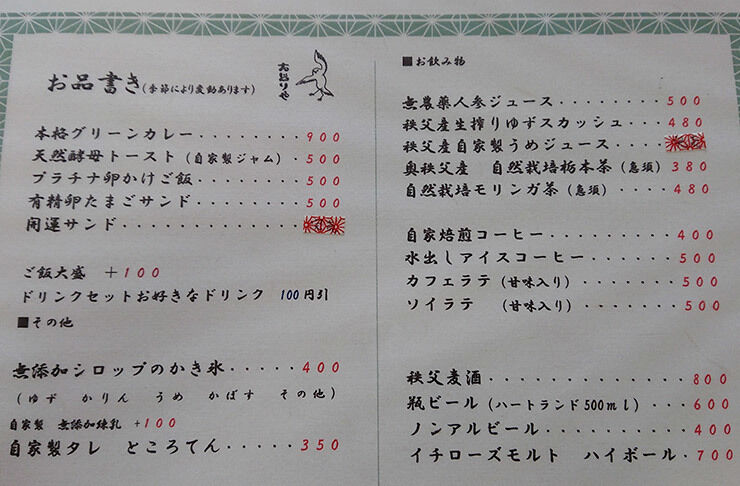 お品書き(季節により変動あります)
本格グリーンカレー・・・・・・・・900
天然酵母トースト(自家製ジャム)・500
プラチナ卵かけご飯・・・・・・・・500
有精卵たまごサンド・・・・・・・・500
開運サンド・・・・・・・・・・・・
ご飯大盛 +100
ドリンクセットお好きなドリンク 100円引
■その他
無添加シロップのかき氷・・・・・400
(ゆず かりん うめ かぼす その他)
自家製 無添加練乳 +100
自家製タレ ところてん・・・・・350
■お飲み物
無農薬人参ジュース・・・・・・・・500
秩父産生搾りゆずスカッシュ・・・480
秩父産自家製うめジュース・・・・
奥秩父産 自然栽培栃本茶(急須)380
自然栽培モリンガ茶(急須)・・・480
自家焙煎コーヒー・・・・・・・・・400
水出しアイスコーヒー・・・・・・・500
カフェラテ(甘味入り)・・・・・・500
ソイラテ (甘味入り)・・・・・・500
秩父麦酒・・・・・・・・・・・・・800
瓶ビール(ハートランド500ml)・・・600
ノンアルビール・・・・・・・・・・400
イチローズモルト ハイボール・700